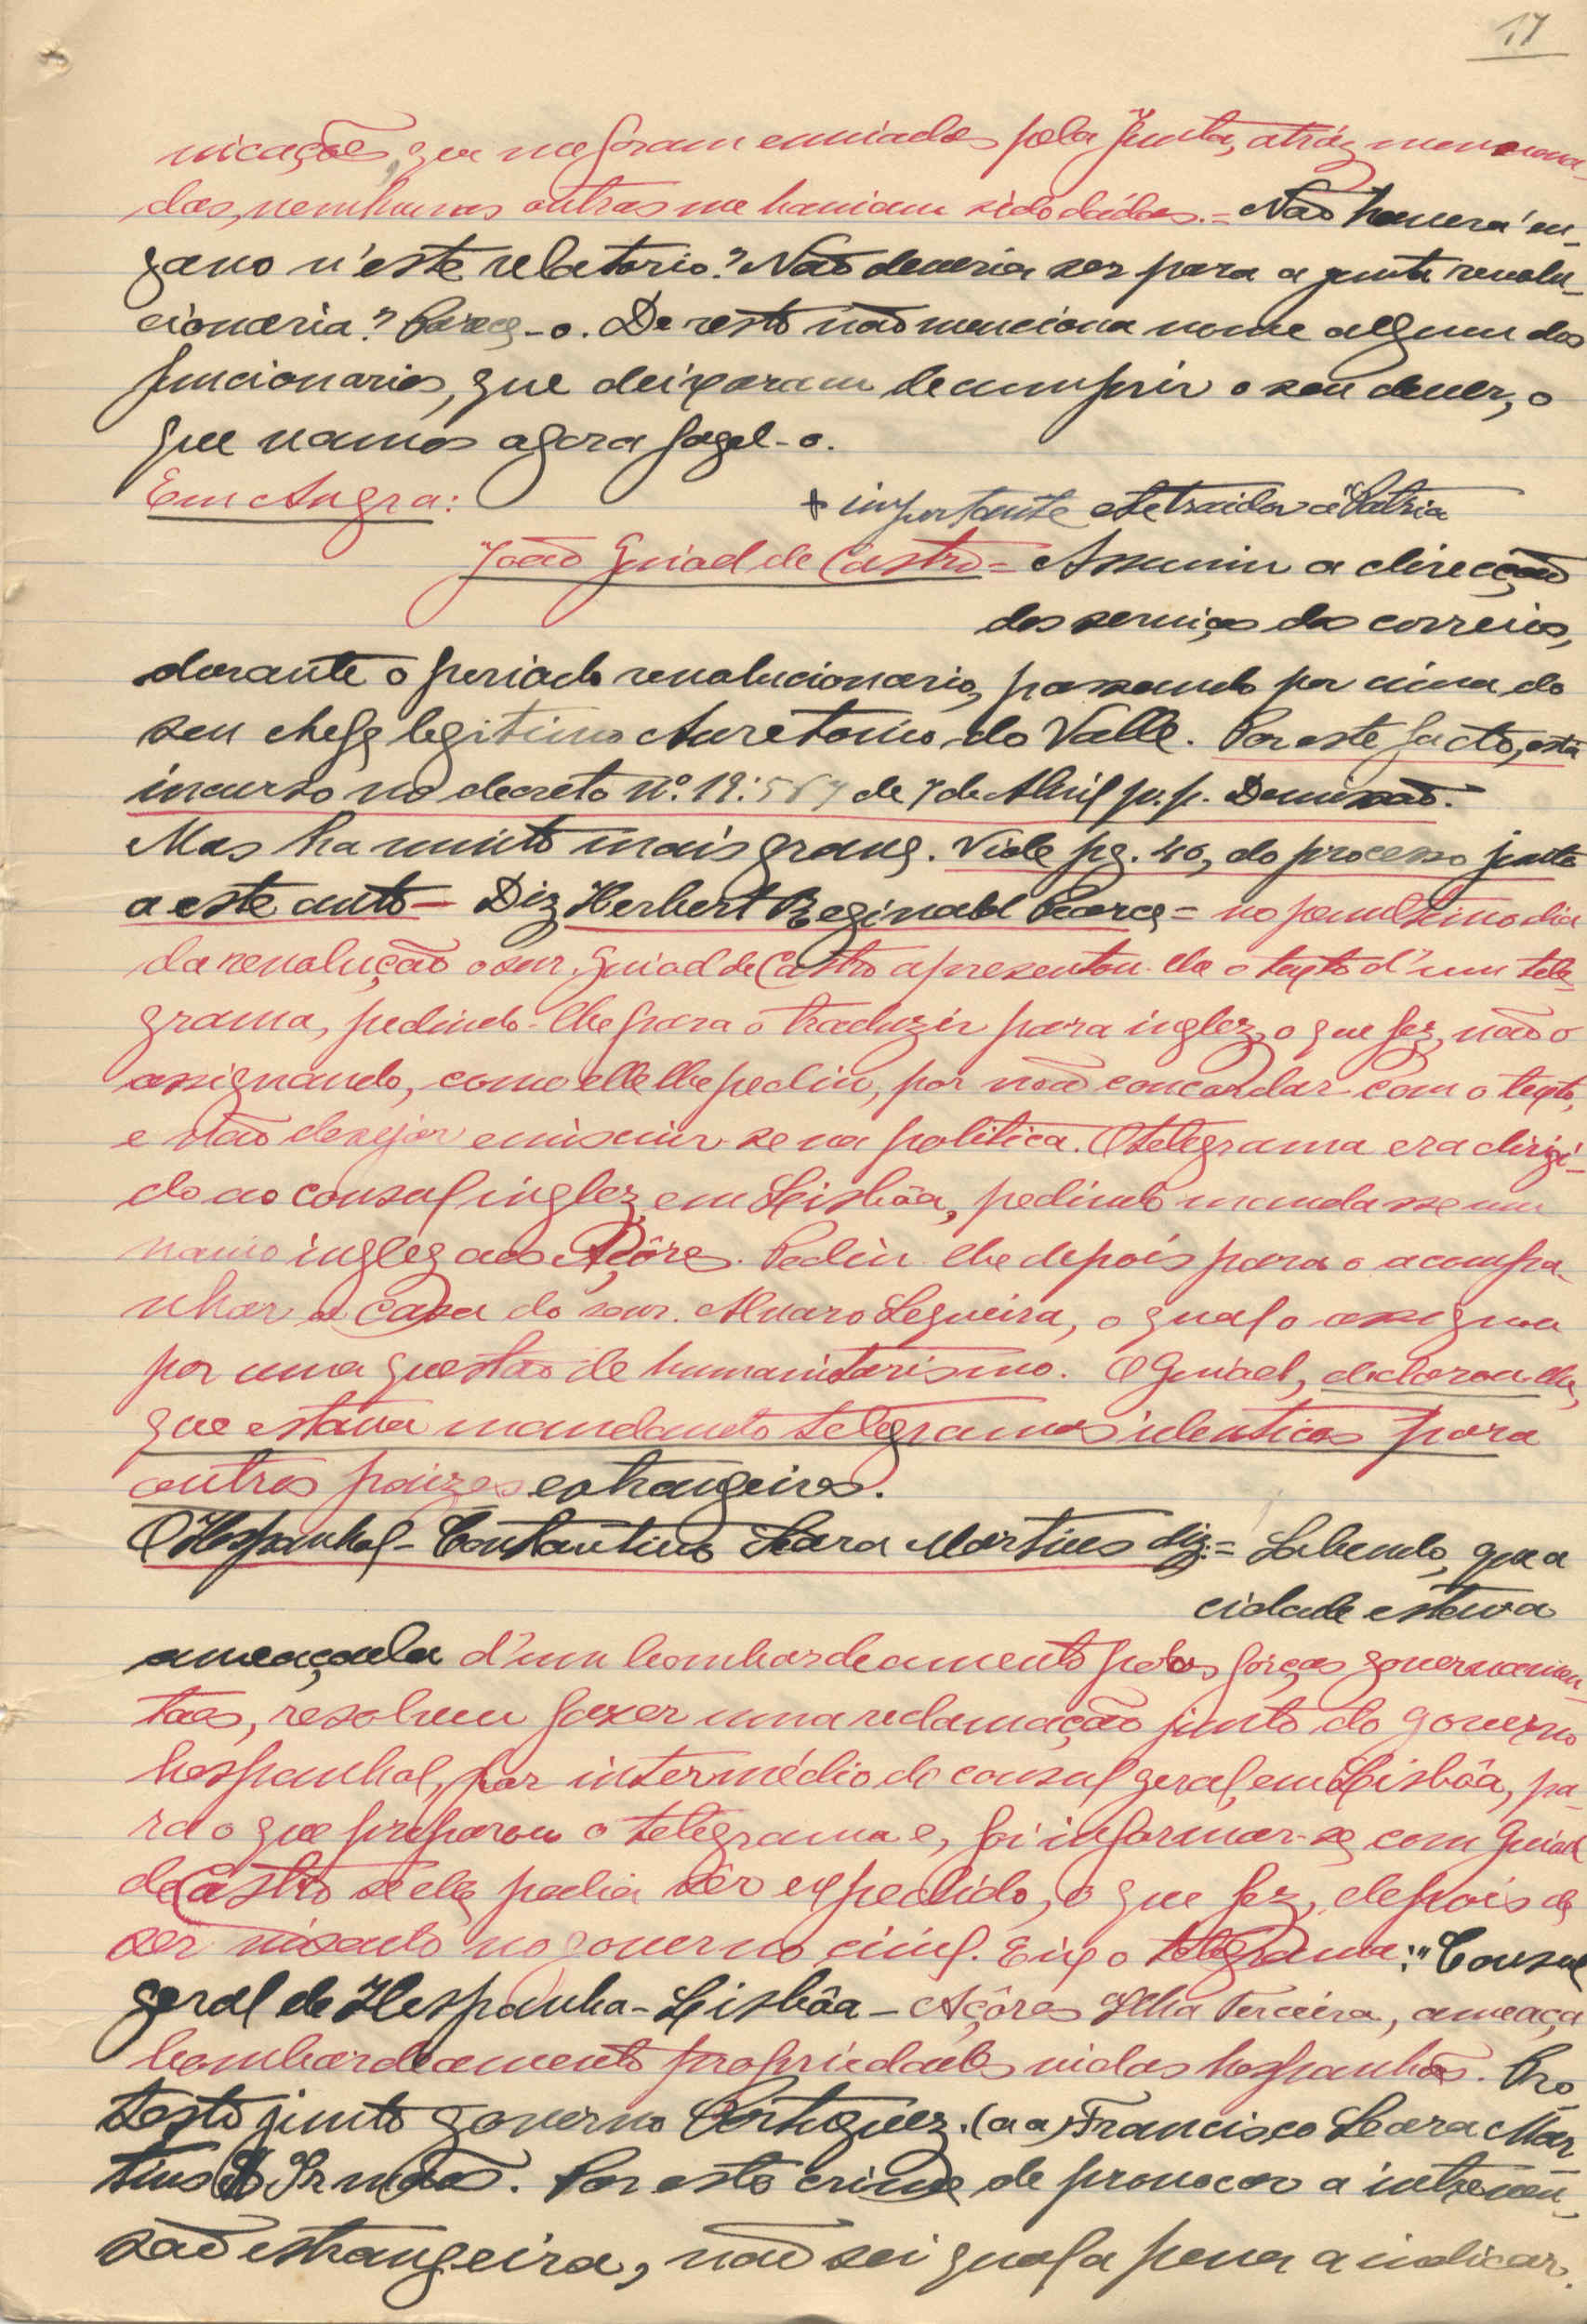 17
nicações, que me foram enviadas pela Junta, atráz menciona-
das, nenhumas outras me haviam sido dadas. = Não haverá en-
gano n'este relatorio? Não deveria ser para a junta revolu-
cionaria? Parece-o. De resto não menciona nome algum dos
funcionarios, que deixaram de cumprir o seu dever, o
que vamos agora fazel-o.
Em Angra:
+ importante e de traidor á Patria
João Guiod de Castro = Assumiu a direcção
dos serviços dos correios,
durante o periodo revolucionario, passando por cima do
seu chefe legitimo Auretonio do Valle. Por este facto, está
incurso no decreto nº. 19:567 de 7 de Abril p. p. Demissão.
Mas ha muito mais grave. Vide pg. 40, do processo junto
a este auto - Diz Herbert Reginald Pearce = no penultimo dia
da revolução o snr. Guiod de Castro apresentou-lhe o texto d'um tele-
grama, pedindo-lhe para o traduzir para inglez, o que fez, não o
assignando, como elle lhe pediu, por não concordar com o texto,
e não desejar emiscuir-se na politica. O telegrama era dirigi-
do ao consul inglez, em Lisbôa, pedindo mandasse um
navio inglez aos Açôres. Pediu-lhe depois para o acompa-
nhar a casa do snr. Alvaro Sequeira, o qual o assignou
por uma questão de humanitarismo. O Guiod, declarou-lhe,
que estava mandando telegramas identicos para
outros paizes estrangeiros.
O Hespanhol - Constantino Lara Martins diz: = Sabendo, que a
cidade estava
ameaçada d'um bombardeamento pelas forças governamen-
taes, resolveu fazer uma reclamação junto do governo
hespanhol, por intermédio do consul geral, em Lisbôa, pa-
ra o que preparou o telegrama e, foi informar-se, com Guiod
de Castro se ele podia sêr expedido, o que fez, depois de
ser visado no governo civil. Eis o telegrama: "Consul
geral de Hespanha - Lisbôa - Açôres Ilha Terceira, ameaça
bombardeamento propriedades vidas hespanhoes. Pro-
testo junto governo Portuguez. (a a) Francisco Lara Mar-
tins & Irmãos. Por este crime de provocar a interven-
são estrangeira, não sei qual a pena a indicar.